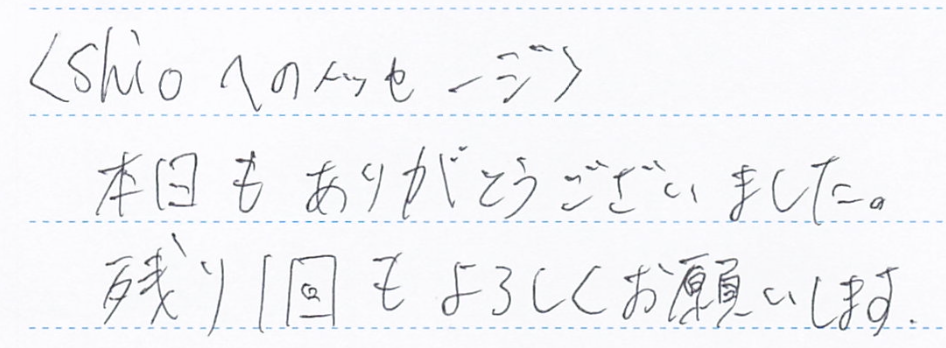 〈Shioへのメッセージ〉
本日もありがとうございました。
残り1回もよろしくお願いします.